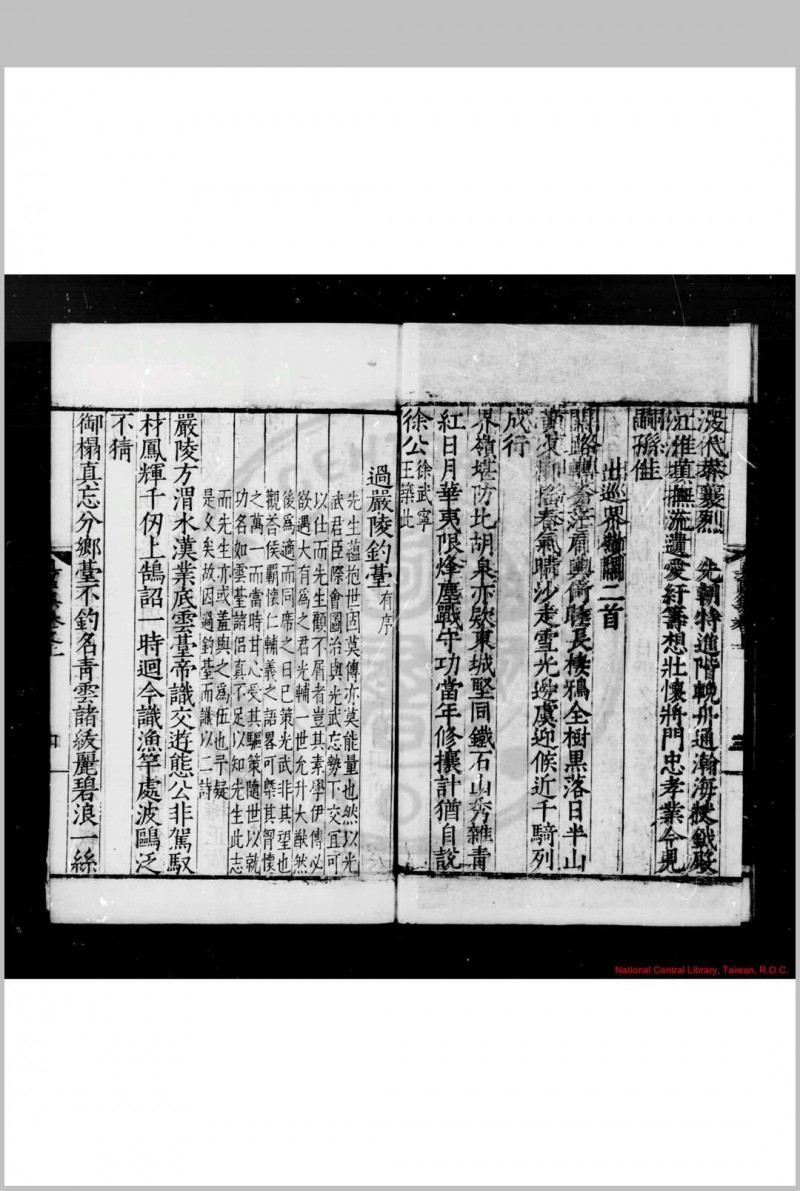 代恭襄烈　先朝特進階輓舟通瀚海授鉞殿
江淮填撫流遺愛紆籌想壯懷將門忠孝業今見
嗣孫佳
出巡界嶺關二首
關路轉蒼茫肩輿倚睡長棲鴉全樹黑落日半山
黃水柳搖春氣晴沙走雪光邊虞迎候近千騎列
成行
界嶺堪防北胡泉亦欵東城堅同鐵石山秀雜青
紅日月華夷限烽塵戰守功當年修攘計猶自說
徐公徐武寧王築此
過嚴陵釣臺有序
先生蘊抱世固莫傳亦莫能量也然以光
武君臣際會圖治與光武忘勢下交宜可
以仕而先生顧不屑者豈其素學伊傅必
欲遇大有為之君光輔一世允升大猷然
後為適而同席之日已策光武非其望也
觀荅侯覇懷仁輔義之語畧可槩其胷懷
之萬一而當時甘心受其驅策隨世以就
功名如雲臺諸侣真不足以知先生此志
而先生亦或羞與之為伍也乎疑
是久矣故因過釣臺而讖以二詩
嚴陵方渭水漢業底雲臺帝識交遊態公非駕馭
材鳳輝千仞上鵠詔一時迴今識漁竿處波鷗泛
不猜
御榻真忘分鄉臺不釣名青雲諸綬麗碧浪一絲
四
National Central Library, Taiwan, R.O.C.